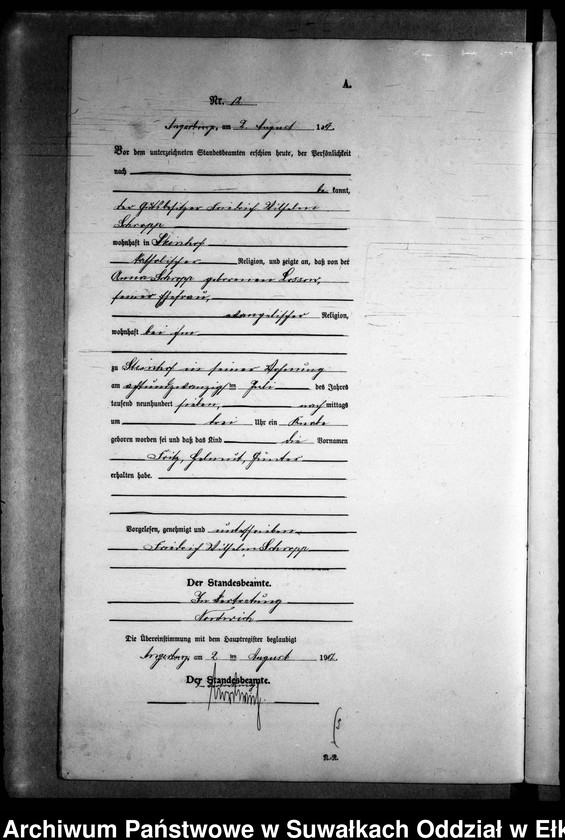 A.
Nr. 12
Angerburg, am 2. August 1907.
Vor dem unterzeichneten Standesbeamten erschien heute, der Persönlichkeit
nach
be kannt,
der Gutsbesitzer Friedrich Wilhelm
Schropp
wohnhaft in Steinhof
katholischer Religion, und zeigte an, daß von der
Anna Schropp geborenen Lossow,
seiner Ehefrau,
evangelischer Religion,
wohnhaft bei ihm
zu Steinhof in seiner Wohnung
am achtundzwanzigsten Juli des Jahres
tausend neunhundert sieben, nach mittags
um drei Uhr ein Knabe
geboren worden sei und daß das Kind die Vornamen
Fritz, Helmut, Günter
erhalten habe.
Vorgelesen, genehmigt und unterschrieben
Friedrich Wilhelm Schropp
Der Standesbeamte.
In Vertretung
Die Übereinstimmung mit dem Hauptregister beglaubigt
Angerburg, am 2 ten August 1907.
Der Standesbeamte.
Archiwum Państwowe w Suwałkach Oddział w Ełk